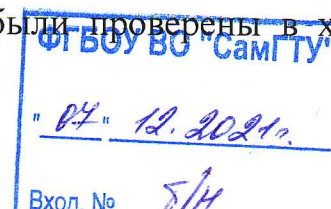 были проверены в х
ФГБОУ ВО "СамГТУ"
"07" 12.2021г.
Вход. № б/н